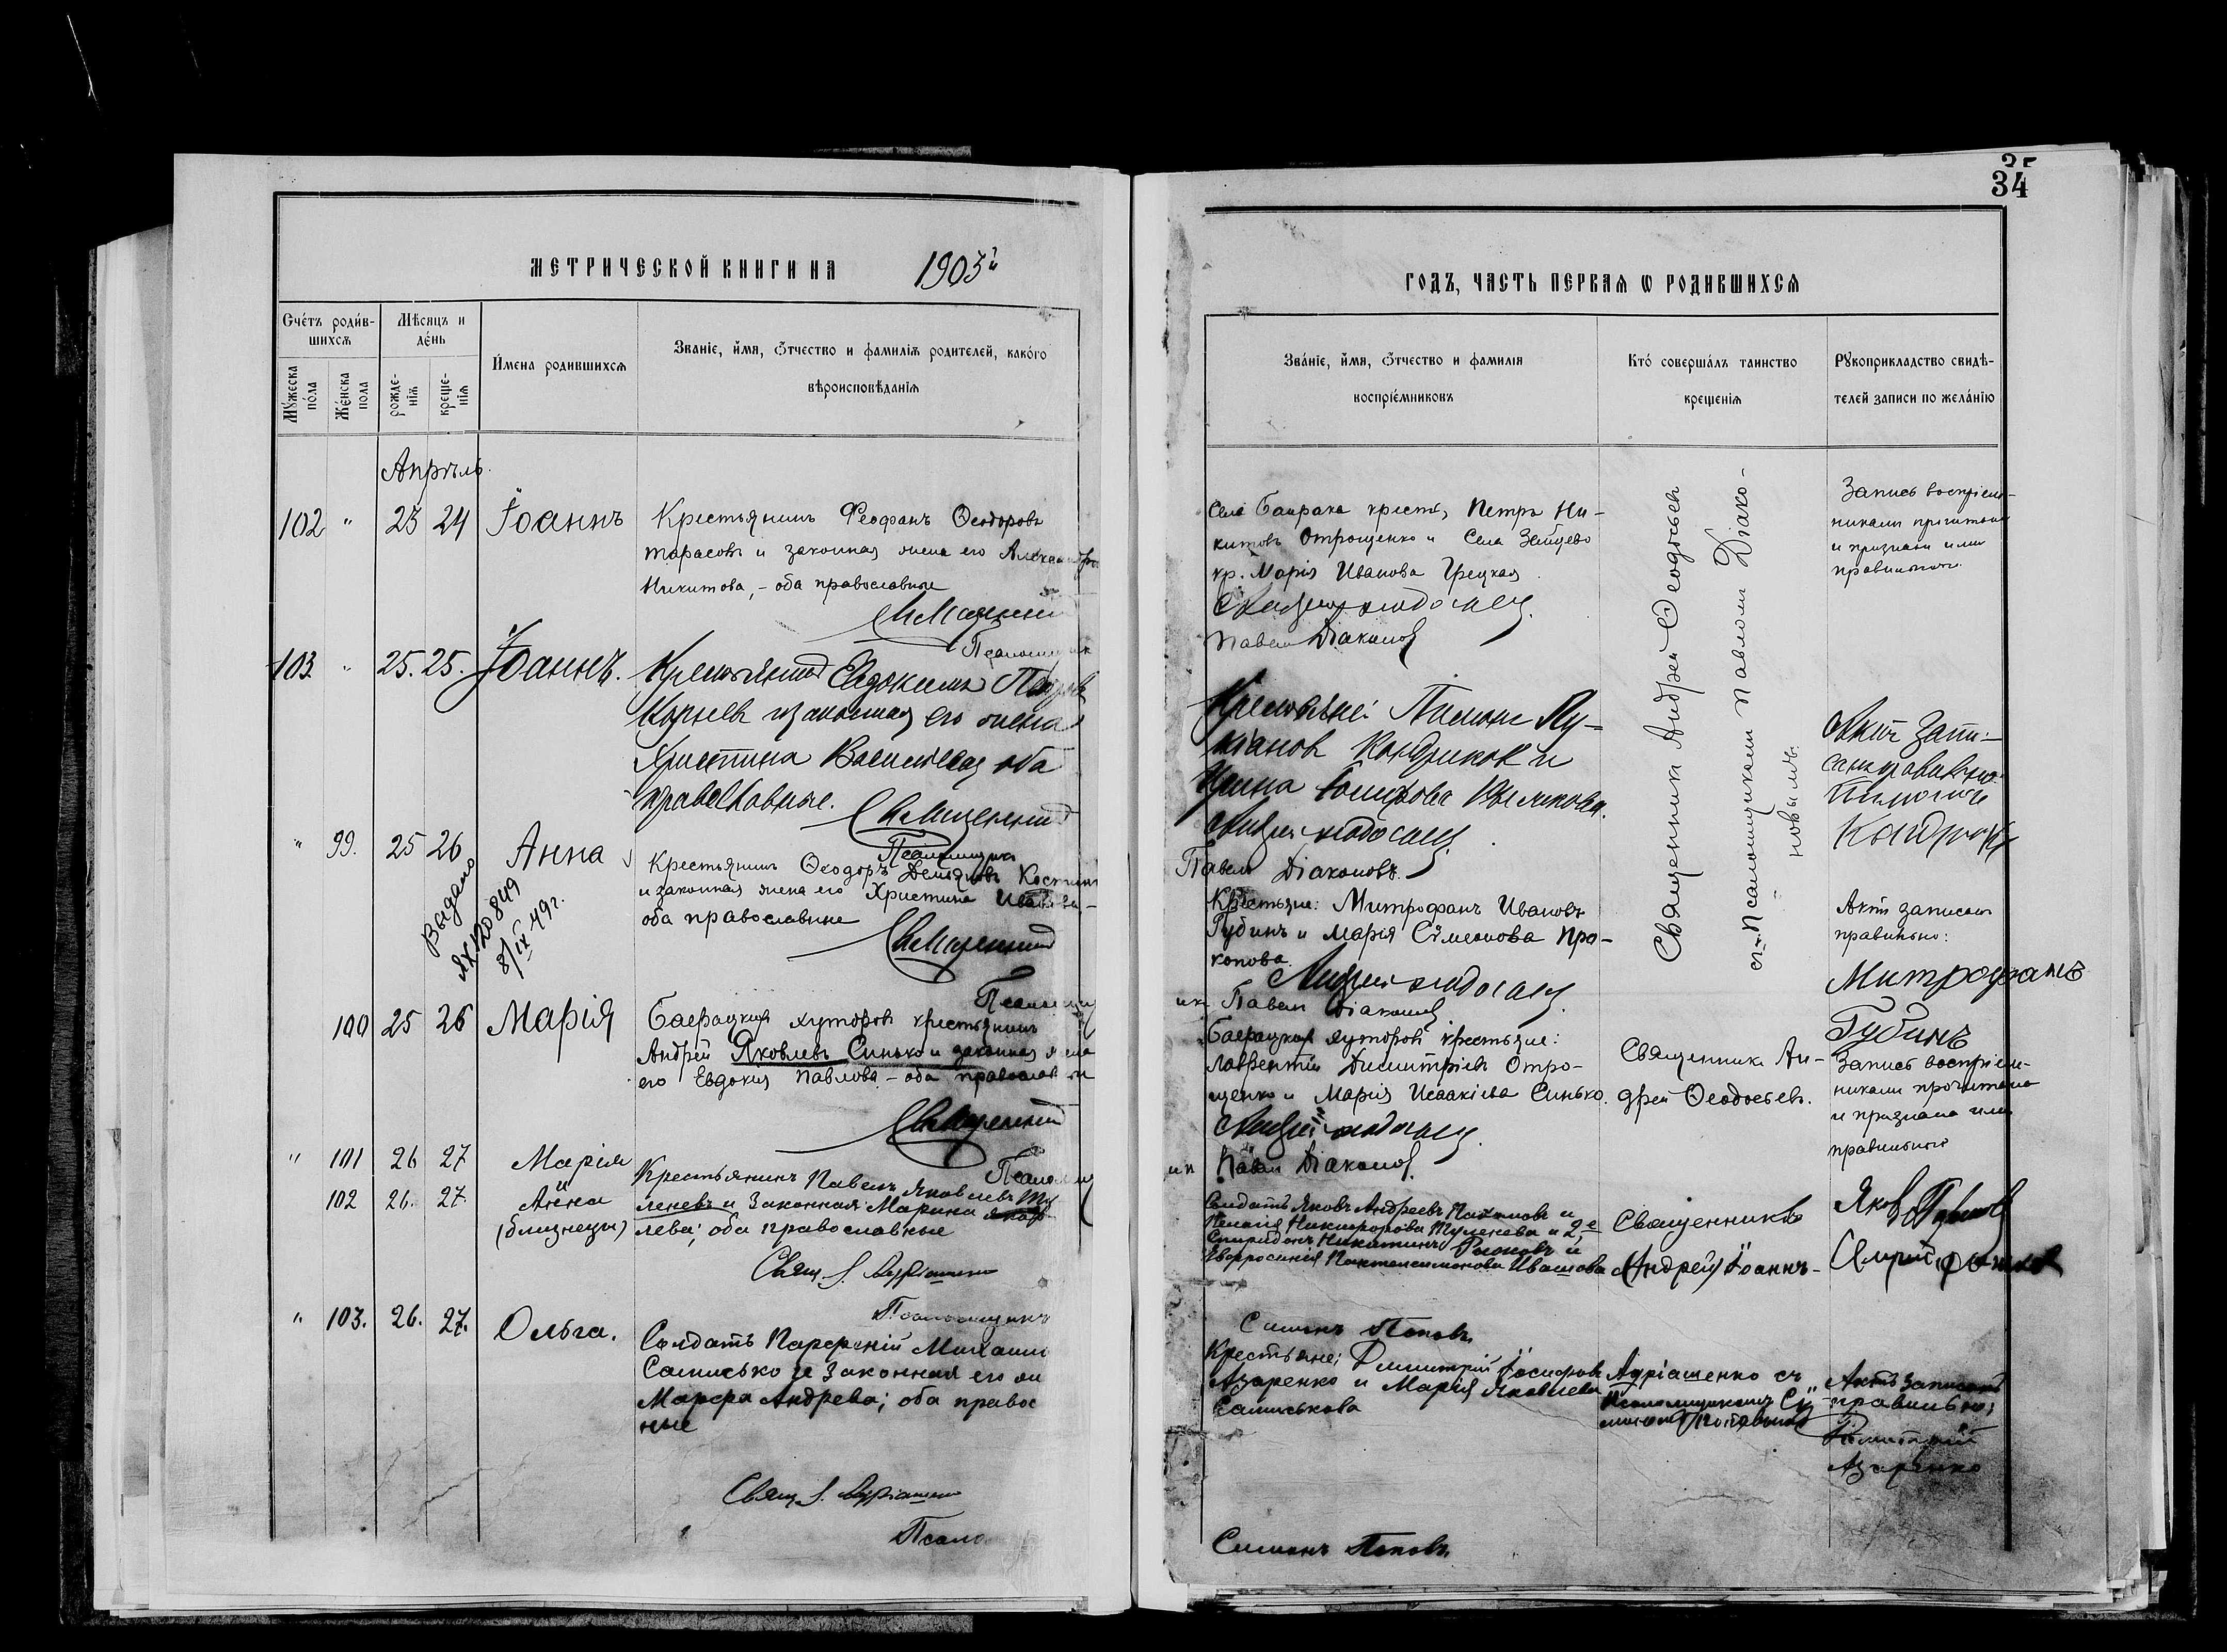 34
МЕТРИЧЕСКОЙ КНИГИ НА 1903й
ГОДЪ, ЧАСТЬ ПЕРВАЯ Ѡ РОДИВШИХСЯ
Счетъ родив-
шихся
Мѣсяцъ и
день
Мужеска
пола
Женска
пола
рожде-
нія
креще-
нія
Имена родившихся
Званіе, имя, отчество и фамилія родителей, какого
вѣроисповѣданія
Званіе, имя, отчество и фамилія
воспріемниковъ
Кто совершалъ таинство
крещенія
Рукоприкладство свидѣ-
телей записи по желанію
Апрѣль.
102 " 23 24 Іоаннъ
Крестьянинъ Феофанъ Ѳеодоровъ
Тарасовъ и законная жена его Александра
Никитова, - оба православные
Священникъ
Псаломщик
Села Баирака крест., Петръ Ни-
китовъ Отрощенко и Села Зайцево
кр. Марія Иванова Грецкая
Андрей Ѳеодосьев
Павел Діаконов
Священник Андрей Ѳеодосьев
съ Псаломщиком Павлом Діако-
новымъ.
Запись воспріем-
никами прочитана
и признана ими
правильною.
103. " 25. 25. Іоаннъ.
Крестьянинъ Евдокимъ
и законная его жена
Христина Васильева оба
православные. Священникъ
Псаломщик
Крестьяне: Пимонъ Лу-
кіановъ Кондриков и
Павелъ Діаконовъ.
Актъ запи-
санъ правильно:
" 99. 25 26 Анна
Крестьянинъ Ѳеодоръ Демьяновъ
и законная жена его Христина Иванова, -
оба православные
Священникъ
Псаломщ
Выдано
ЯХ 120849
8/IX 49 г.
Крестьяне: Митрофанъ Ивановъ
Губинъ и Марія Сѵмеонова Про-
копова.
Андрей Ѳеодосьев
ик Павел Діаконов
Актъ записанъ
правильно:
Митрофанъ
Губинъ
100 25 26 Марія
Баерацких хуторов крестьянинъ
Андрей Яковлевъ Синько и законная жена
его Евдокия Павлова, - оба православные
Священникъ
Псаломщ
Баерацких хуторов крестьяне:
Лаврентій Димитріев Отро-
щенко и Марія Исаакіева Синько.
Андрей Ѳеодосьев
ик Павел Діаконов.
Священник Ан-
дрей Ѳеодосьевъ.
Запись воспріем-
никами прочитана
и признана ими
правильной
" 101 26 27 Марія
102 26. 27. Анна
(близнецы)
Крестьянинъ Павелъ Яковлевъ Ту
леневъ и Законная Марина
лева; оба православные
Свящ. І. Адріашенко
Псаломщикъ
Солдатъ Яковъ Андреевъ Пахомовъ и
Пелагія Никифорова Туленева и 2е
Спиридонъ Никитинъ и
Евфросинія Пантелеимонова Ивашова
Симонъ Поповъ.
Священникъ
Андрей Іоаннъ
" 103. 26. 27. Ольга.
Солдатъ Парфеній Михаил
Самисько и Законная его жи
Марфа Андрева; оба правос
ные
Свящ. І. Адріашенко
Псало
Крестьяне; Димитрій Іосифовъ
Азаренко и Марія Яковлева
Самиськова
Симонъ Поповъ.
Адріашенко съ
Псаломщикомъ Си
мономъ Поповымъ
Актъ записанъ
правильно;
Димитрій
Азаренко